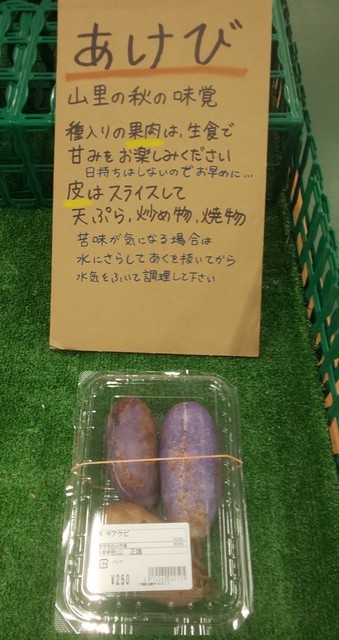 あけび
山里の秋の味覚
種入りの果肉は、生食で
甘みをお楽しみください
日持ちはしないのでお早めに…
皮はスライスして
天ぷら、炒め物、焼物
苦味が気になる場合は
水にさらしてあくを抜いてから
水気をふいて調理して下さい
アケビ
¥250